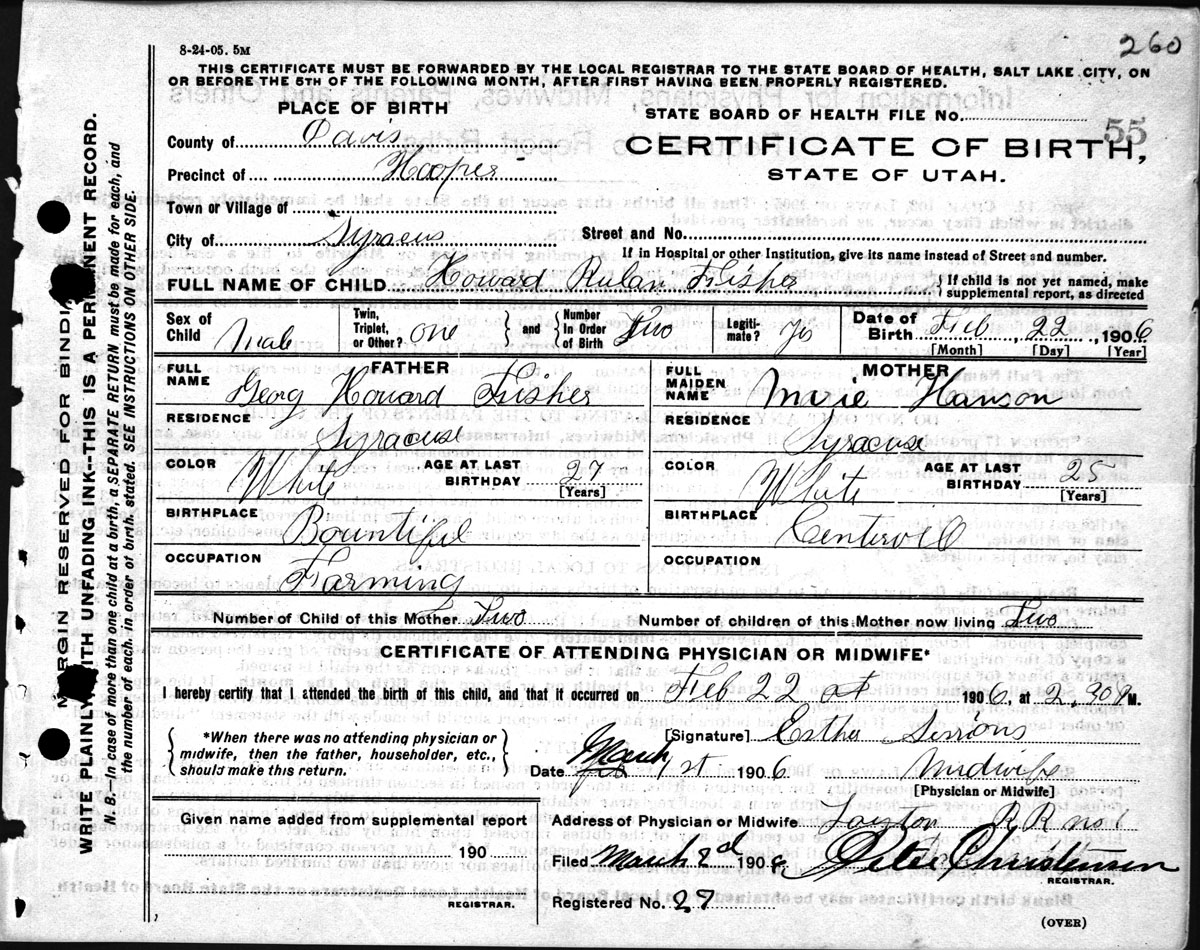 260
8-24-05. 5M
THIS CERTIFICATE MUST BE FORWARDED BY THE LOCAL REGISTRAR TO THE STATE BOARD OF HEALTH, SALT LAKE CITY, ON
OR BEFORE THE 5TH OF THE FOLLOWING MONTH, AFTER FIRST HAVING BEEN PROPERLY REGISTERED.
PLACE OF BIRTH
STATE BOARD OF HEALTH FILE No.
55
County of Davis
CERTIFICATE OF BIRTH,
Precinct of Hooper
STATE OF UTAH.
Town or Village of
City of Syracus
Street and No.
If in Hospital or other Institution, give its name instead of Street and number.
FULL NAME OF CHILD Howard Rulan Fisher
{ If child is not yet named, make supplemental report, as directed
Sex of Child Male
Twin, Triplet, or Other? one } and { Number In Order of Birth Two
Legiti-mate? Yes
Date of Birth Feb, 22, 1906
[Month] [Day] [Year]
FATHER
FULL NAME Georg Howard Fisher
RESIDENCE Syracuse
COLOR White
AGE AT LAST BIRTHDAY 27
[Years]
BIRTHPLACE Bountiful
OCCUPATION Farming
MOTHER
FULL MAIDEN NAME Marie Hanson
RESIDENCE Syracuse
COLOR White
AGE AT LAST BIRTHDAY 25
[Years]
BIRTHPLACE Centervill
OCCUPATION
Number of Child of this Mother Two
Number of children of this Mother now living Two
CERTIFICATE OF ATTENDING PHYSICIAN OR MIDWIFE*
I hereby certify that I attended the birth of this child, and that it occurred on Feb 22 at 1906 at 2,30 P M.
{ *When there was no attending physician or
midwife, then the father, householder, etc.,
should make this return. }
[Signature] Esther Sessions
Date March 1st 1906
Midwife
[Physician or Midwife]
Given name added from supplemental report
190
REGISTRAR.
Address of Physician or Midwife Layton RR no 1
Filed March 2d 1906. Peter Christensen
REGISTRAR.
Registered No. 27
(OVER)
MARGIN RESERVED FOR BINDING
WRITE PLAINLY WITH UNFADING INK--THIS IS A PERMANENT RECORD.
N. B.--In case of more than one child at a birth, a SEPARATE RETURN must be made for each, and
the number of each, in order of birth, stated. SEE INSTRUCTIONS ON OTHER SIDE.